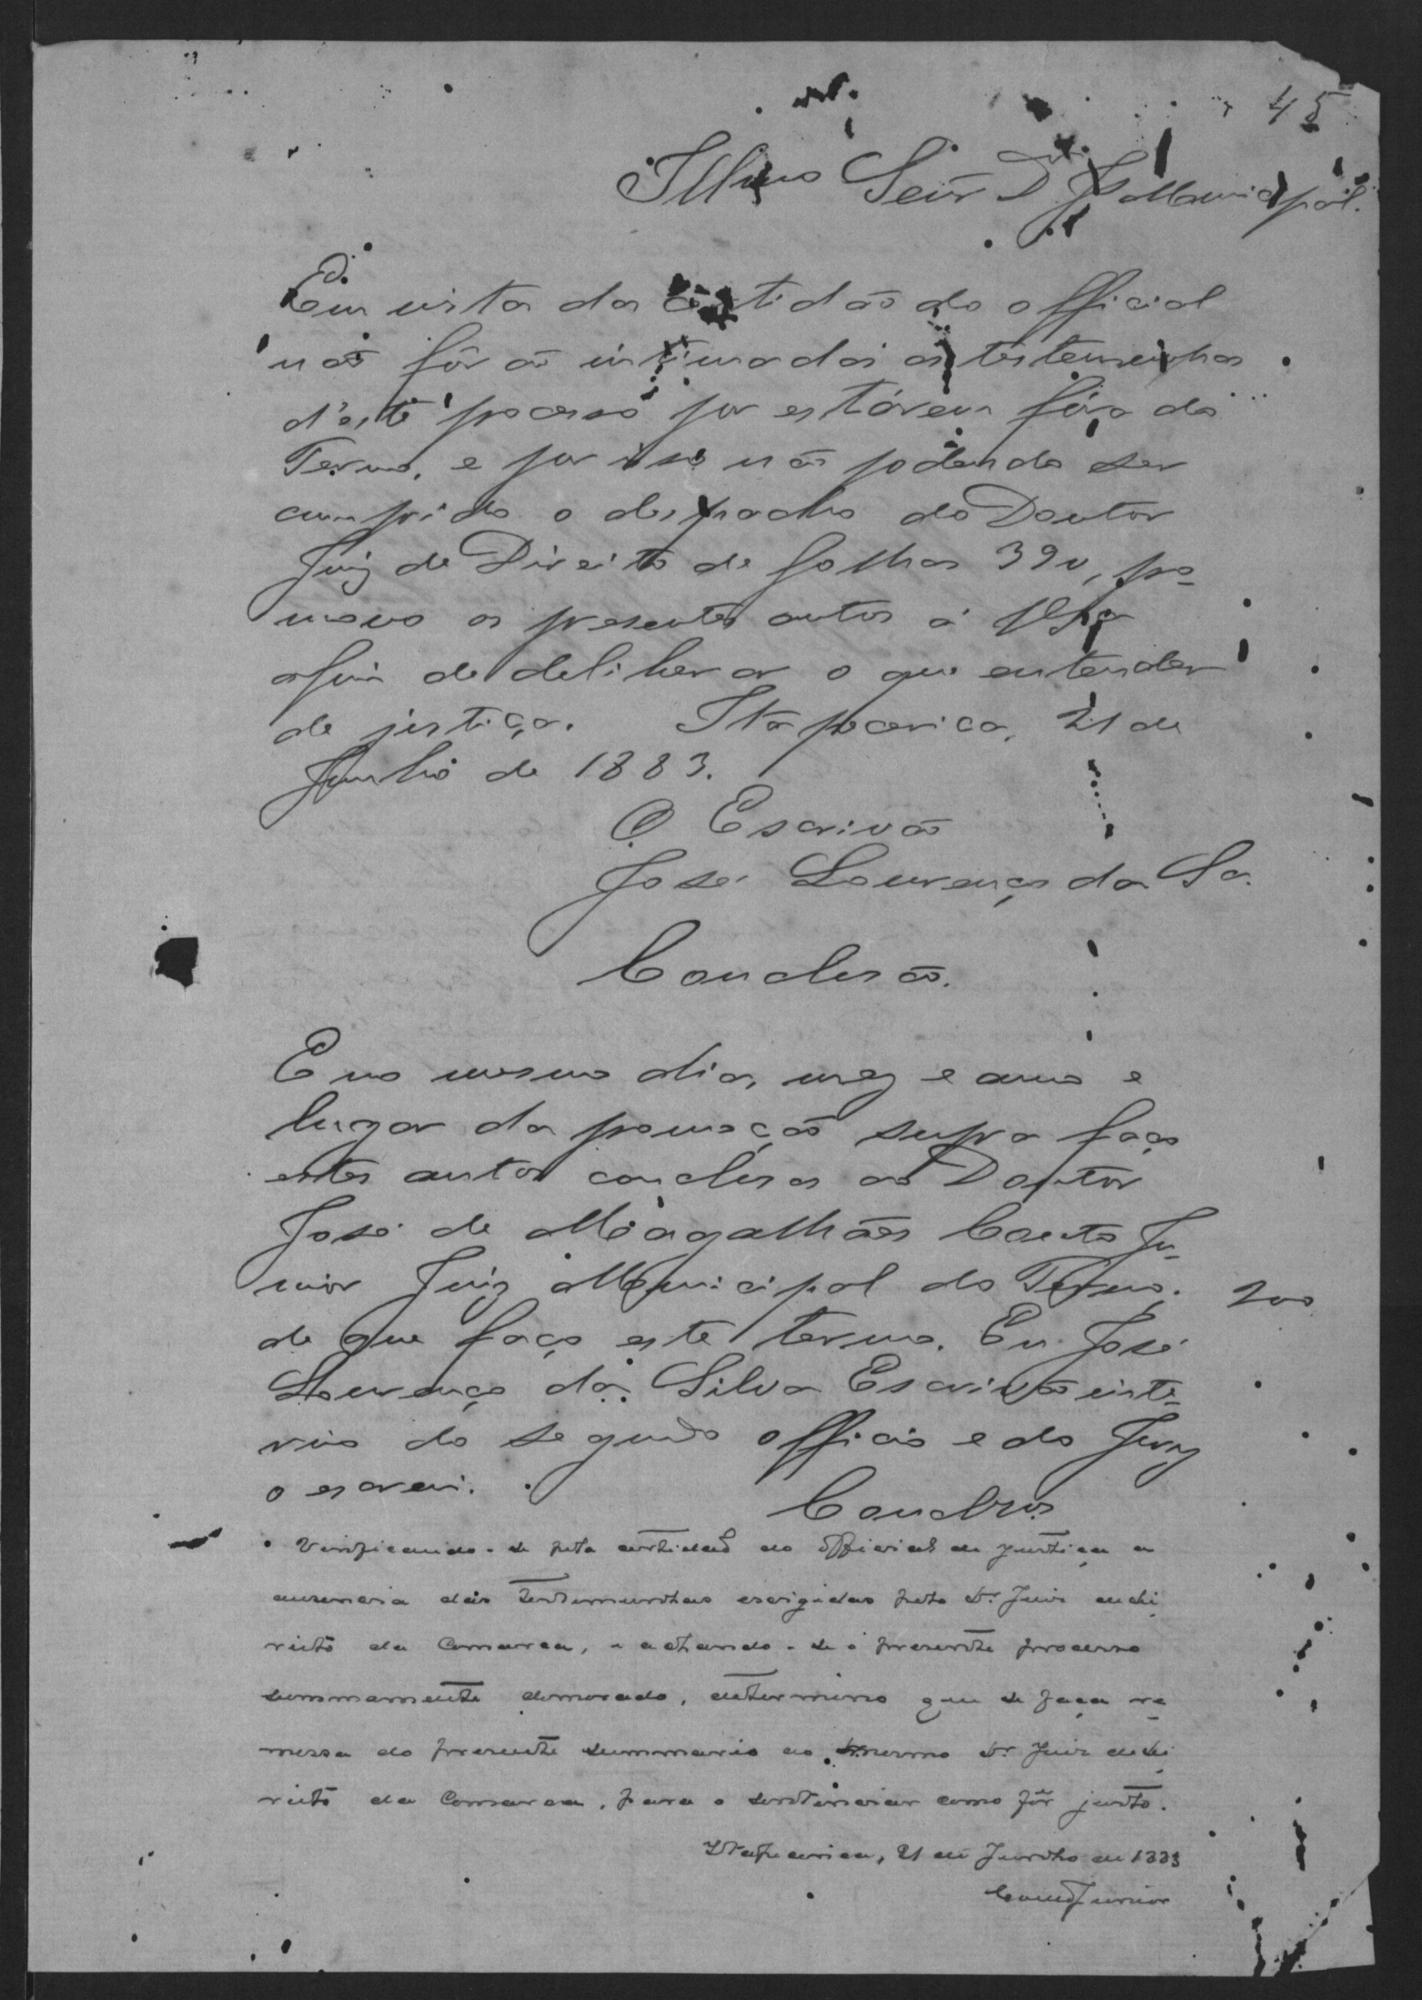 45
Illmo Senr Dr Juiz Municipal.
Em vista da certidão do official
não fôrão intimadas as testemunhas
d'este processo por estárem fóra do
Termo, e por isso não podendo ser
cumprido o despacho do Doutor
Juiz de Direito de folhas 39v, pro-
movo os presentes autos á VSa
afim de deliberar o que entender
de justiça. Itapecerica, 21 de
Junho de 1883.
O Escrivão
José Lourenço da Sa.
Conclusão.
E no mesmo dia, mez e anno e
lugar da promoção supra faço
estes autos conclusos ao Doutor
José de Magalhães Couto Ju-
nior Juiz Municipal do Termo.
200
de que faço este termo. Eu José
Lourenço da Silva Escrivão inte-
rino do segundo officio e do Jury
o escrevi.
Conclusos
Verificando-se pela certidão do official de justiça a
ausencia das testemunhas exigidas pelo Dr. Juiz de Di-
reito da Comarca, e achando-se o presente processo
summamente demorado, determino que se faça re-
messa do presente summario ao mesmo Dr. Juiz de Di-
reito da Comarca, para o sentenciar como fôr justo.
Itapecerica, 21 de Junho de 1883
Couto Junior